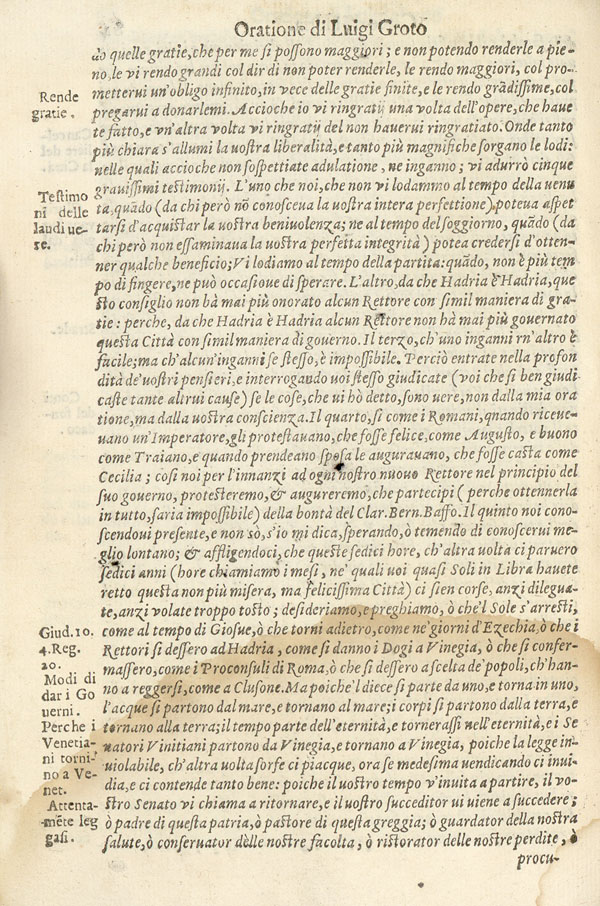 Oratione di Luigi Groto
do quelle gratie, che per me si possono maggiori; e non potendo renderle a pie-
no, le vi rendo grandi col dir di non poter renderle, le rendo maggiori, col pro-
metterui un'obligo infinito, in vece delle gratie finite, e le rendo grãdissime, col
pregarui a donarlemi. Accioche io vi ringratij una volta dell'opere, che haue
te fatto, e vn'altra volta vi ringratij del non hauerui ringratiato. Onde tanto
più chiara s'allumi la uostra liberalità, e tanto più magnifiche sorgano le lodi:
nelle quali accioche non sospettiate adulatione, ne inganno; vi adurrò cinque
grauissimi testimonij. L'uno che noi, che non vi lodammo al tempo della venu
ta, quãdo (da chi però nõ conosceua la uostra intera perfettione) poteua aspet
tarsi d'acquistar la uostra beniuolenza; ne al tempo del soggiorno, quãdo (da
chi però non essaminaua la uostra perfetta integrità) potea credersi d'otte-
ner qualche beneficio; Vi lodiamo al tempo della partita: quãdo, non è più tem
po di fingere, ne può occasione di sperare. L'altro, da che Hadria è Hadria, que
sto consiglio non hà mai più onorato alcun Rettore con simil maniera di gra-
tie: perche, da che Hadria è Hadria alcun Rettore non hà mai più gouernato
questa Città con simil maniera di gouerno. Il terzo, ch'uno inganni vn'altro è
facile; ma ch'alcun'inganni se stesso, è impossibile. Perciò entrate nella profon
dità de'uostri pensieri, e interrogando uoi stesso giudicate (voi che si ben giudi
caste tante altrui cause) se le cose, che ui hò detto, sono uere, non dalla mia ora
tione, ma dalla uostra conscienza. Il quarto, si come i Romani, quando riceue-
uano un'Imperatore, gli protestauano, che fosse felice, come Augusto, e buono
come Traiano, e quando prendeano sposa le augurauano, che fosse casta come
Cecilia; cosi noi per l'innanzi ad ogni nostro nuouo Rettore nel principio del
suo gouerno, protesteremo, & augureremo, che partecipi (perche ottennerla
in tutto, saria impossibile) della bontà del Clar. Bern. Baffo. Il quinto noi cono-
scendoui presente, e non sò, s'io mi dica, sperando, ò temendo di conoscerui me-
glio lontano; & affligendoci, che queste sedici hore, ch'altra volta ci paruero
sedici anni (hore chiamiamo i mesi, ne' quali uoi quasi Soli in Libra hauete
retto questa non più misera, ma felicissima Città) ci sien corse, anzi dilegua-
te, anzi volate troppo tosto; desideriamo, e preghiamo, ò che'l Sole s'arresti,
come al tempo di Giosue, ò che torni adietro, come ne'giorni d'Ezechia, ò che i
Rettori si dessero ad Hadria, come si danno i Dogi a Vinegia, ò che si confer-
massero, come i Proconsuli di Roma, ò che si dessero a scelta de'popoli, ch'han-
no a reggersi, come a Clusone. Ma poiche'l diece si parte da uno, e torna in uno,
l'acque si partono dal mare, e tornano al mare; i corpi si partono dalla terra, e
tornano alla terra; il tempo parte dell'eternità, e tornerassi nell'eternità, e i Se
natori Vinitiani partono da Vinegia, e tornano a Vinegia, poiche la legge in-
uiolabile, ch'altra volta forse ci piacque, ora se medesima vendicando ci inui-
dia, e ci contende tanto bene: poiche il uostro tempo v'inuita a partire, il vo-
stro Senato vi chiama a ritornare, e il uostro succeditor ui uiene a succedere;
ò padre di questa patria, ò pastore di questa greggia; ò guardator della nostra
salute, ò conseruator delle nostre facolta, ò ristorator delle nostre perdite, ò
procu-
Rende
gratie.
Testimo
ni delle
laudi ue-
re.
Giud. 10.
4. Reg.
20.
Modi di
dar i Go
uerni.
Perche i
Venetia-
ni torni-
no a Ve-
net.
Attenta-
mẽte leg
gasi.